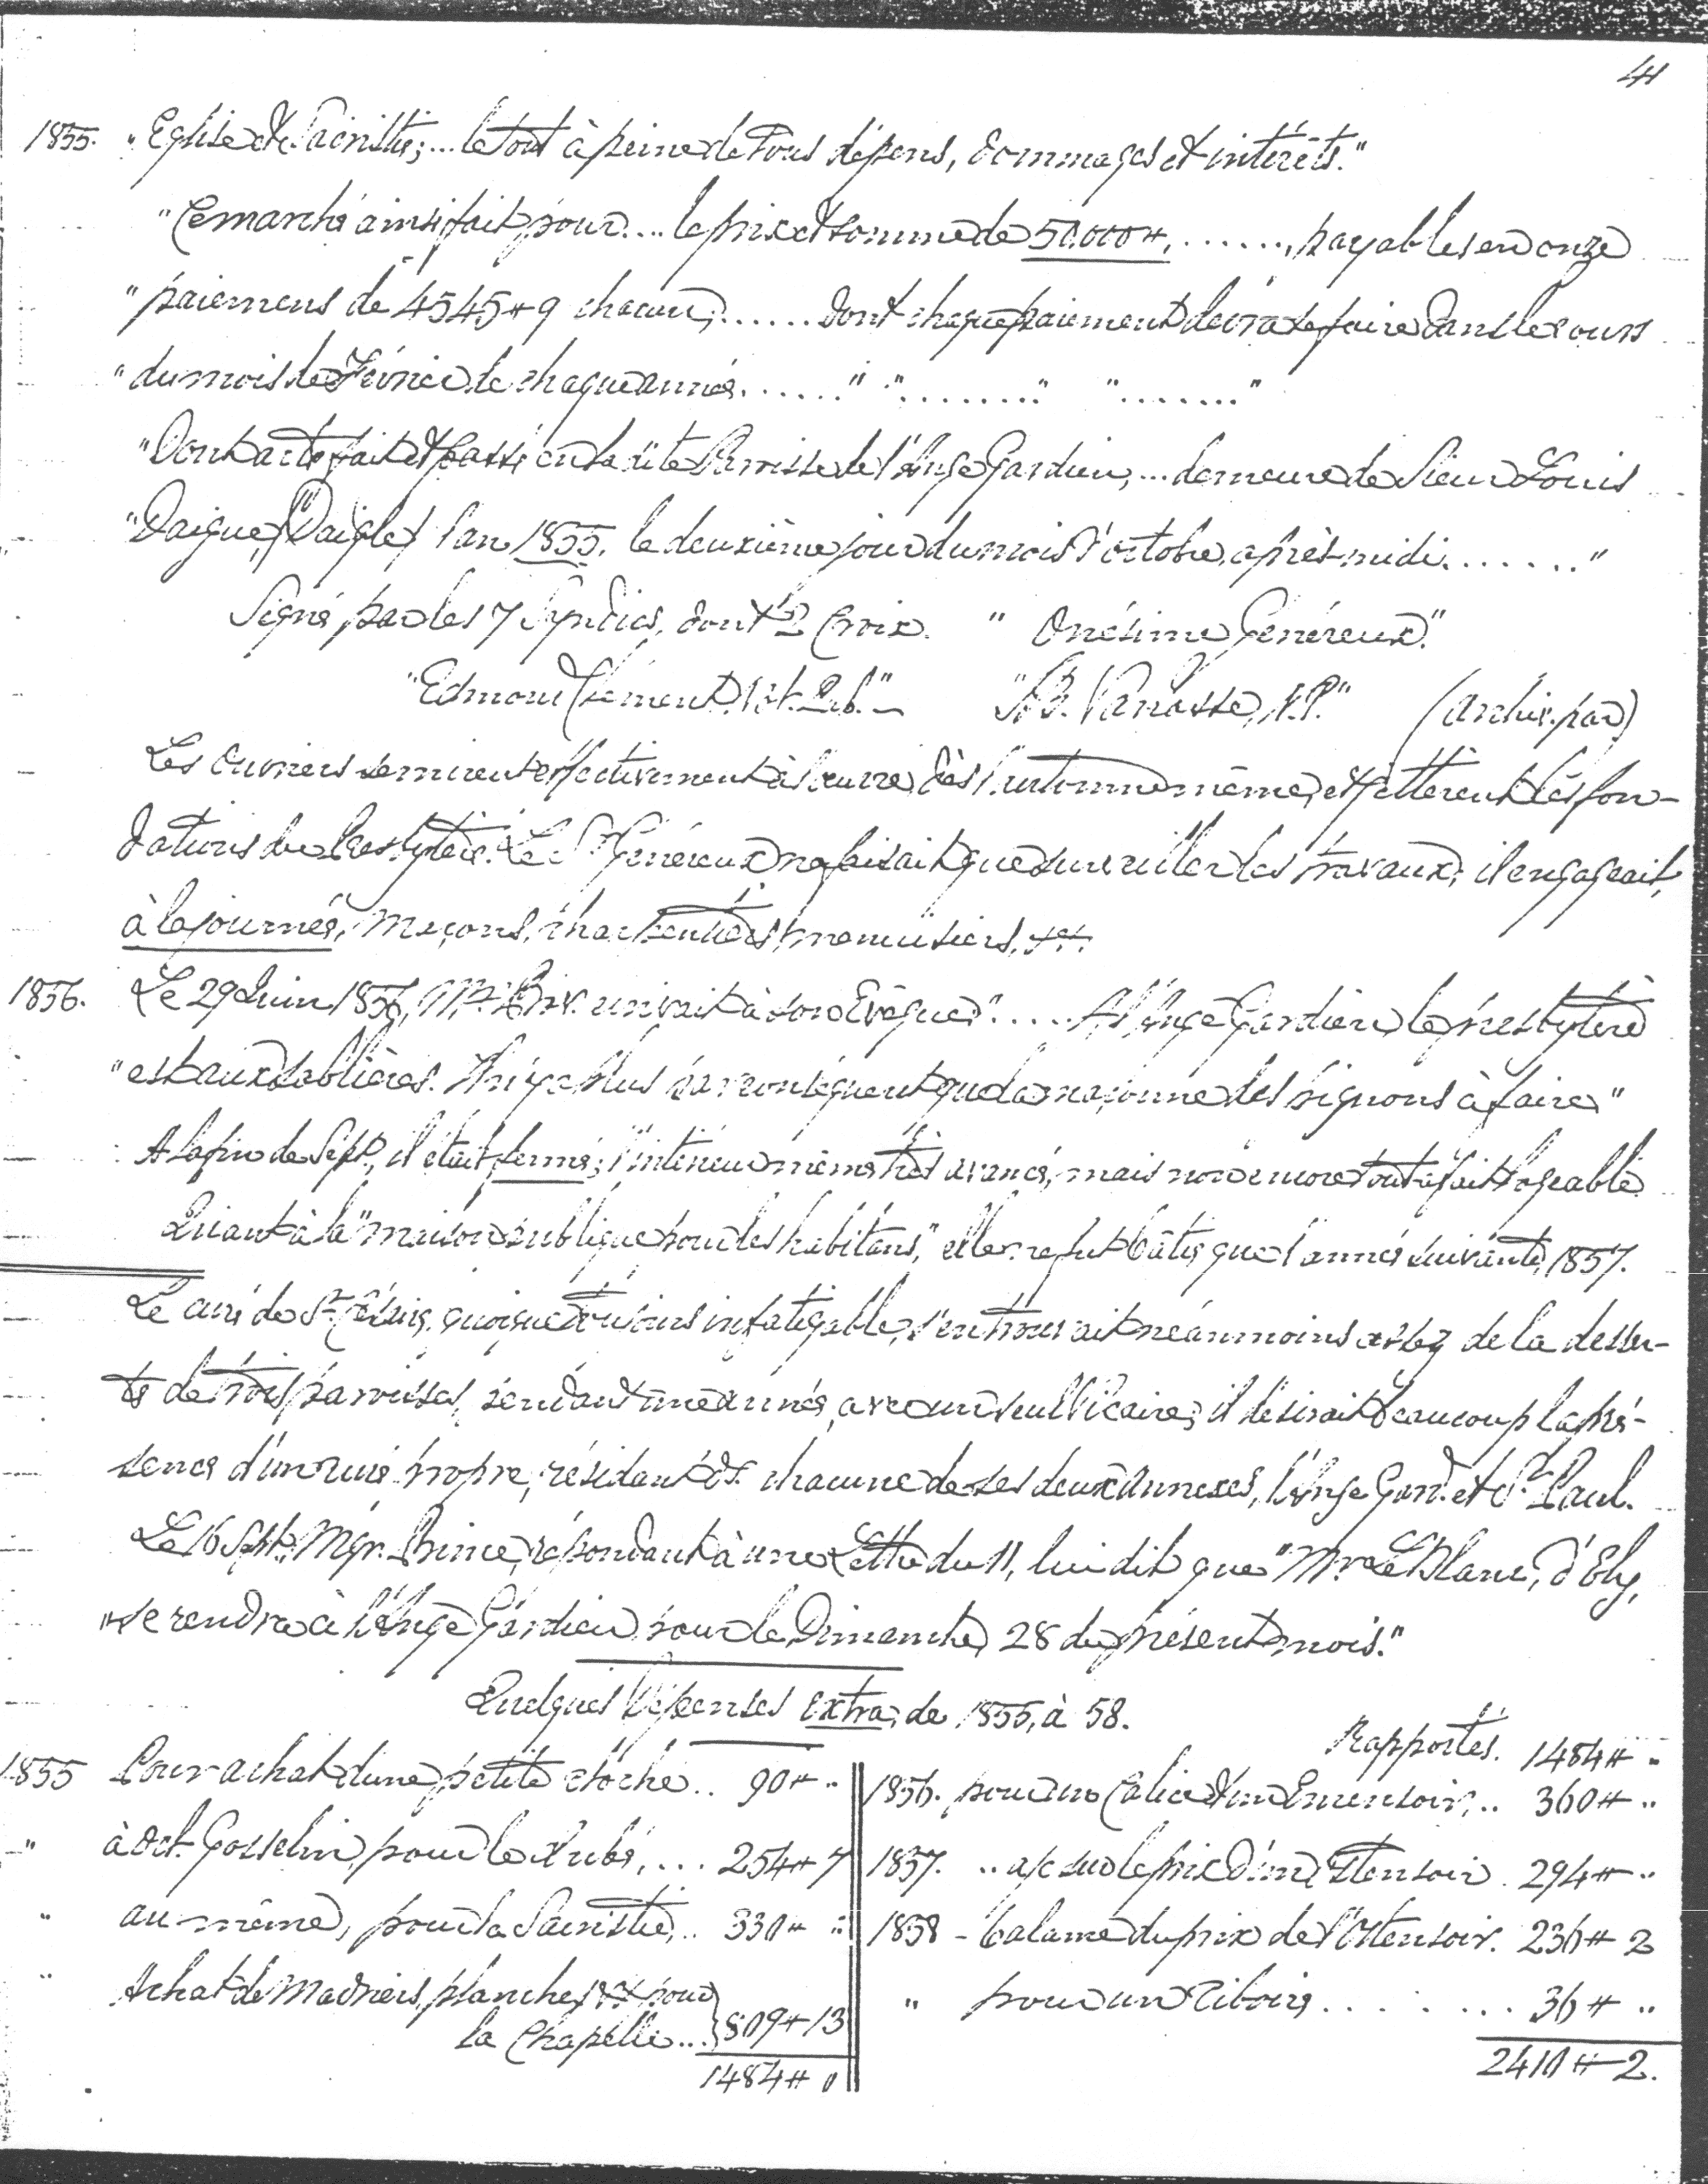 41
1855. "Eglise & Sacristie; ... le tout à peine de Tous dépens, dommages et intérêts."
"Ce marché ainsi fait pour .... le prix et somme de 50,000 ₶, ......., payables en onze
"paiemens de 4545 ₶ 9 chacun, ...... dont chaque paiement devra se faire dans le cours
"du mois de Février de chaque année. ......" "........" "......."
"Dont acte fait et passé en la dite Paroisse de l'Ange Gardien, ... demeure de Sieur Louis
"Daigne, (Daigle) l'an 1855, le deuxième jour du mois d'octobre, après-midi. ......"
Signé par les 7 Syndics, dont 2 Croix. "Onésime Généreux."
"Edmond Clément, Not. Pub." — "J.B. Vanasse, N.P." (Archiv. par)
Les ouvriers se mirent effectivement à l'œuvre, dès l'automne même, et jettèrent les fon-
dations du Presbytère. Le Sr Généreux ne faisait que surveiller les travaux; il engageait,
à la journée, maçons, charpentiers, menuisiers, &c.
1856. Le 29 Juin 1856, Mr. écrivait à son Evêque: ".... A l'Ange Gardien, le presbytère
"est aux sablières. Il n'y a plus par conséquent que la maçonne des pignons à faire"
A la fin de Sept., il était fermé; l'intérieur même très avancé, mais non encore tout à fait logeable.
Quant à la "maison publique pour les habitans," elle ne fut bâtie que l'année suivante, 1857.
Le curé de St Césaire, quoique toujours infatigable, s'en trouvait néanmoins assez de la desser-
te de trois paroisses, pendant une année, avec un seul Vicaire; il désirait beaucoup la pré-
sence d'un curé propre, résidant ds. chacune de ses deux annexes, l'Ange Gard. et St Paul.
Le 16 Sept. Mgr. Prince, répondant à une Lettre du 11, lui dit que "Mr LeBlanc, d'Ely,
"se rendra à l'Ange Gardien pour le Dimanche, 28 du présent mois."
Quelques Dépenses extra, de 1855, à 58.
1855 Pour achat d'une petite cloche .. 90 ₶ "
" à Oct. Gosselin, pour le Jubé, ... 254 ₶ 7
" au même, pour la Sacristie, .. 330 ₶ "
" Achat de Madriers, planches, &c pour
la Chapelle ... 809 ₶ 13
1484 ₶ 0
Rapportés. 1484 ₶ "
1856. pour un Calice & un Encensoir, .. 360 ₶ "
1857. " a/c sur le prix d'un Ostensoir. 294 ₶ "
1858 - balance du prix de l'Ostensoir. 236 ₶ 2
" pour un Ciboire ........ 36 ₶ "
2410 ₶ 2.